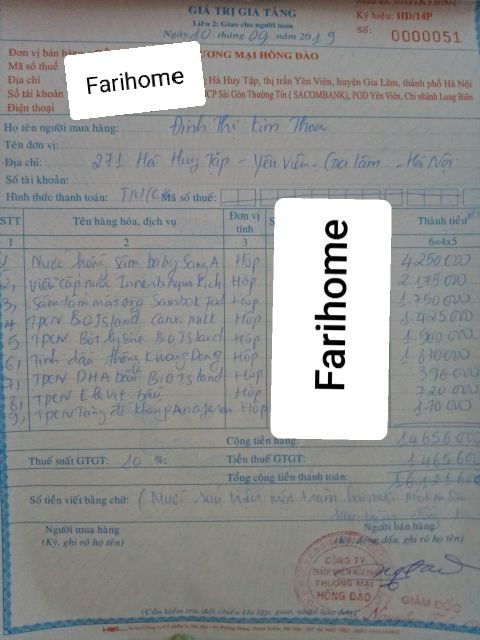 GIÁ TRỊ GIA TĂNG
Liên 2: Giao cho người mua
Ký hiệu: HD/14P
Ngày 10 tháng 09 năm 2019
Số: 0000051
Đơn vị bán hàng
ƯƠNG MẠI HỒNG ĐÀO
Mã số thuế
Farihome
Địa chỉ
Hà Huy Tập, thị trấn Yên Viên, huyện Gia Lâm, thành phố Hà Nội
Số tài khoản
CP Sài Gòn Thường Tín ( SACOMBANK), PGD Yên Viên, Chi nhánh Long Biên
Điện thoại
Họ tên người mua hàng: Đinh Thị Kim Thoa
Tên đơn vị:
Địa chỉ: 271 Hà Huy Tập - Yên Viên - Gia Lâm - Hà Nội
Số tài khoản:
Hình thức thanh toán: TM/CK Mã số thuế:
STT Tên hàng hóa, dịch vụ Đơn vị tính Thành tiền
1 2 3 6=4x5
1, Nước hồng sâm baby Sang A Hộp 4250000
2, Viên cấp nước Innerb Aqua Rich Hộp 2.175.000
3, Hộp 1.750.000
4 TPCN BIO Island milk Hộp 1.425.000
5 TPCN Bột lysine Bio Island Hộp 1.900.000
6, Tinh dầu thông Kwang Dong Hộp 1870000
7, TPCN DHA bầu BIO Island Hộp 396000
8, TPCN Elevit bầu Hộp 720000
9, TPCN Tăng đề kháng Hộp 170000
Farihome
Cộng tiền hàng: 14656000
Thuế suất GTGT: 10 %; Tiền thuế GTGT: 1465600
Tổng cộng tiền thanh toán: 16121600
Số tiền viết bằng chữ: (Mười sáu triệu một trăm hai mươi mốt
Người mua hàng Người bán hàng
(Ký, ghi rõ họ tên) (Ký, đóng dấu, ghi rõ họ tên)
CÔNG TY
THƯƠNG MẠI
HỒNG ĐÀO
GIÁM ĐỐC
(Cần kiểm tra, đối chiếu khi lập, giao, nhận hóa đơn)